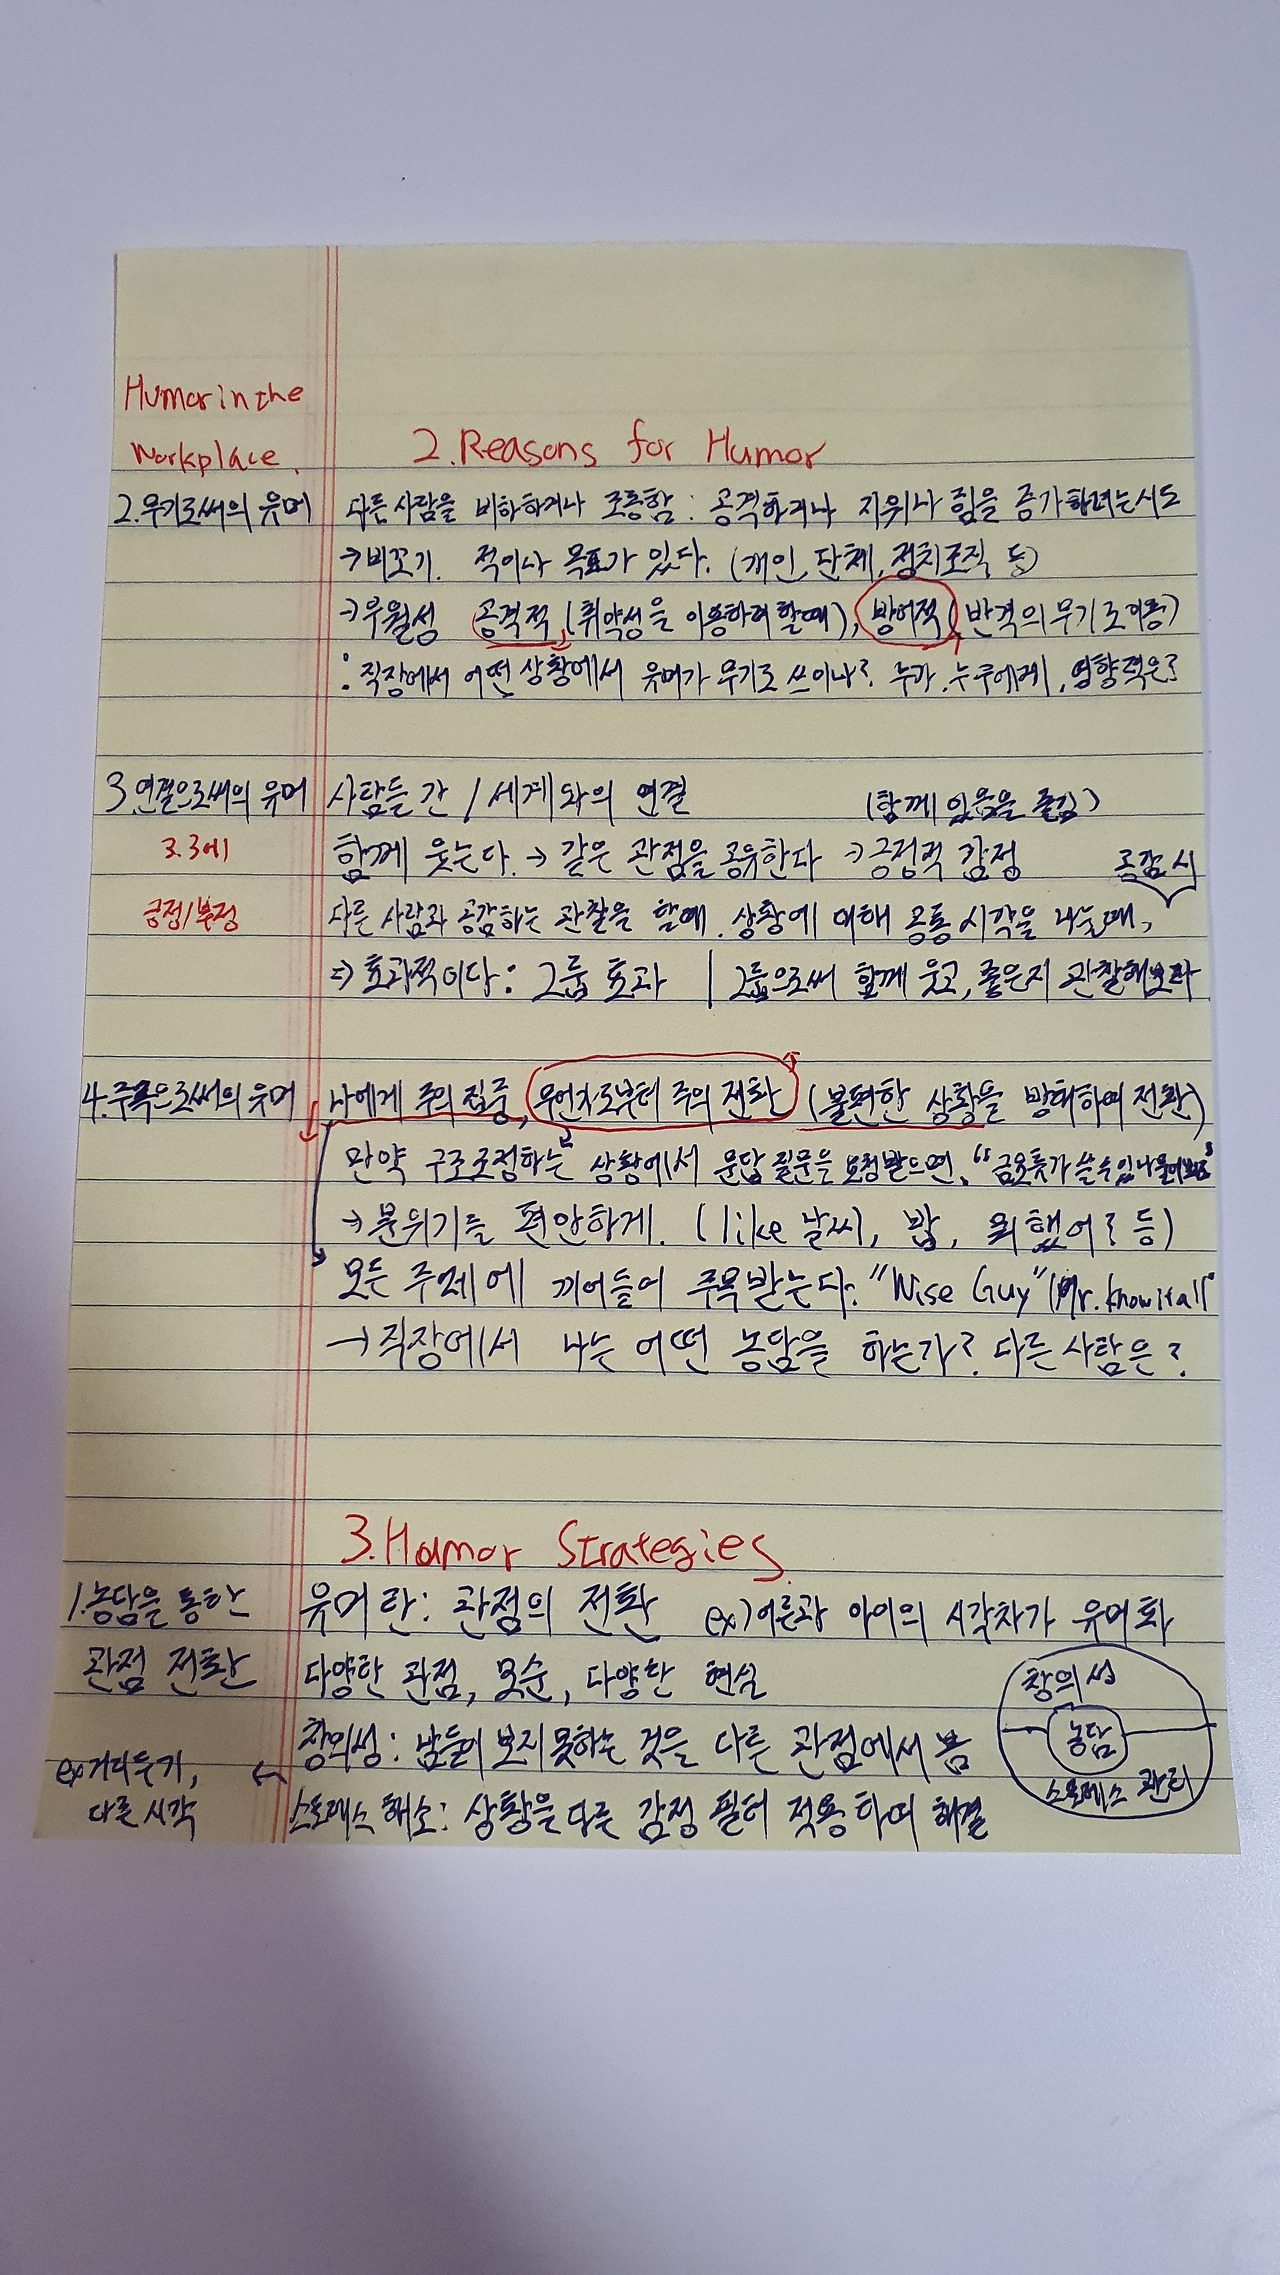 Humor in the
Workplace.
2. Reasons for Humor
2. 무기로써의 유머 다른 사람을 비하하거나 조롱함 : 공격하거나 지위나 힘을 증가하려는 시도
→ 비꼬기. 적이나 목표가 있다. (개인, 단체, 정치조직 등)
→ 우월성 공격적 (취약성을 이용하려 할때), 방어적 (반격의 무기로 이용)
: 직장에서 어떤 상황에서 유머가 무기로 쓰이나? 누가, 누구에게, 영향력은?
3. 연결으로써의 유머 사람들 간 / 세계와의 연결 (함께 있음을 즐김)
3.3에 함께 웃는다. → 같은 관점을 공유한다 → 긍정적 감정 공감 시
긍정/부정 다른 사람과 공감하는 관찰을 할때. 상황에 대해 공통 시각을 나눌때,
⇒ 효과적이다 : 그룹 효과 | 그룹으로써 함께 웃고, 좋은지 관찰해보라
4. 주목으로써의 유머 나에게 주의 집중, 무언가로부터 주의 전환 (불편한 상황을 방해하여 전환)
만약 구조조정하는 상황에서 문답 질문을 요청받으면, "금요룻가
→ 분위기를 편안하게. (like 날씨, 밥, 뭐했어? 등)
모든 주제에 끼어들어 주목받는다. "Wise Guy" (Mr. know it all"
→ 직장에서 나는 어떤 농담을 하는가? 다른 사람은?
3. Humor Strategies.
1. 농담을 통한 유머란 : 관점의 전환 ex) 어른과 아이의 시각차가 유머화
관점 전환 다양한 관점, 모순, 다양한 현실
창의성
창의성 : 남들이 보지 못하는 것을 다른 관점에서 봄
농담
ex 거리두기, ← 스트레스 해소 : 상황을 다른 감정 필터 적용하여 해결
다른 시각
스트레스 관리